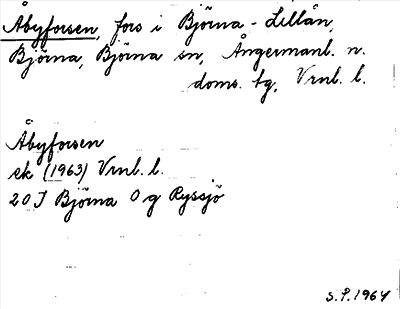 Åbyforsen, fors i Björna-Lillån,
Björna, Björna sn, Ångermanl. n.
doms. tg, Vrnl. l.
Åbyforsen
ek (1963) Vrnl. l.
20 I Björna O g Ryssjö
S.P. 1964